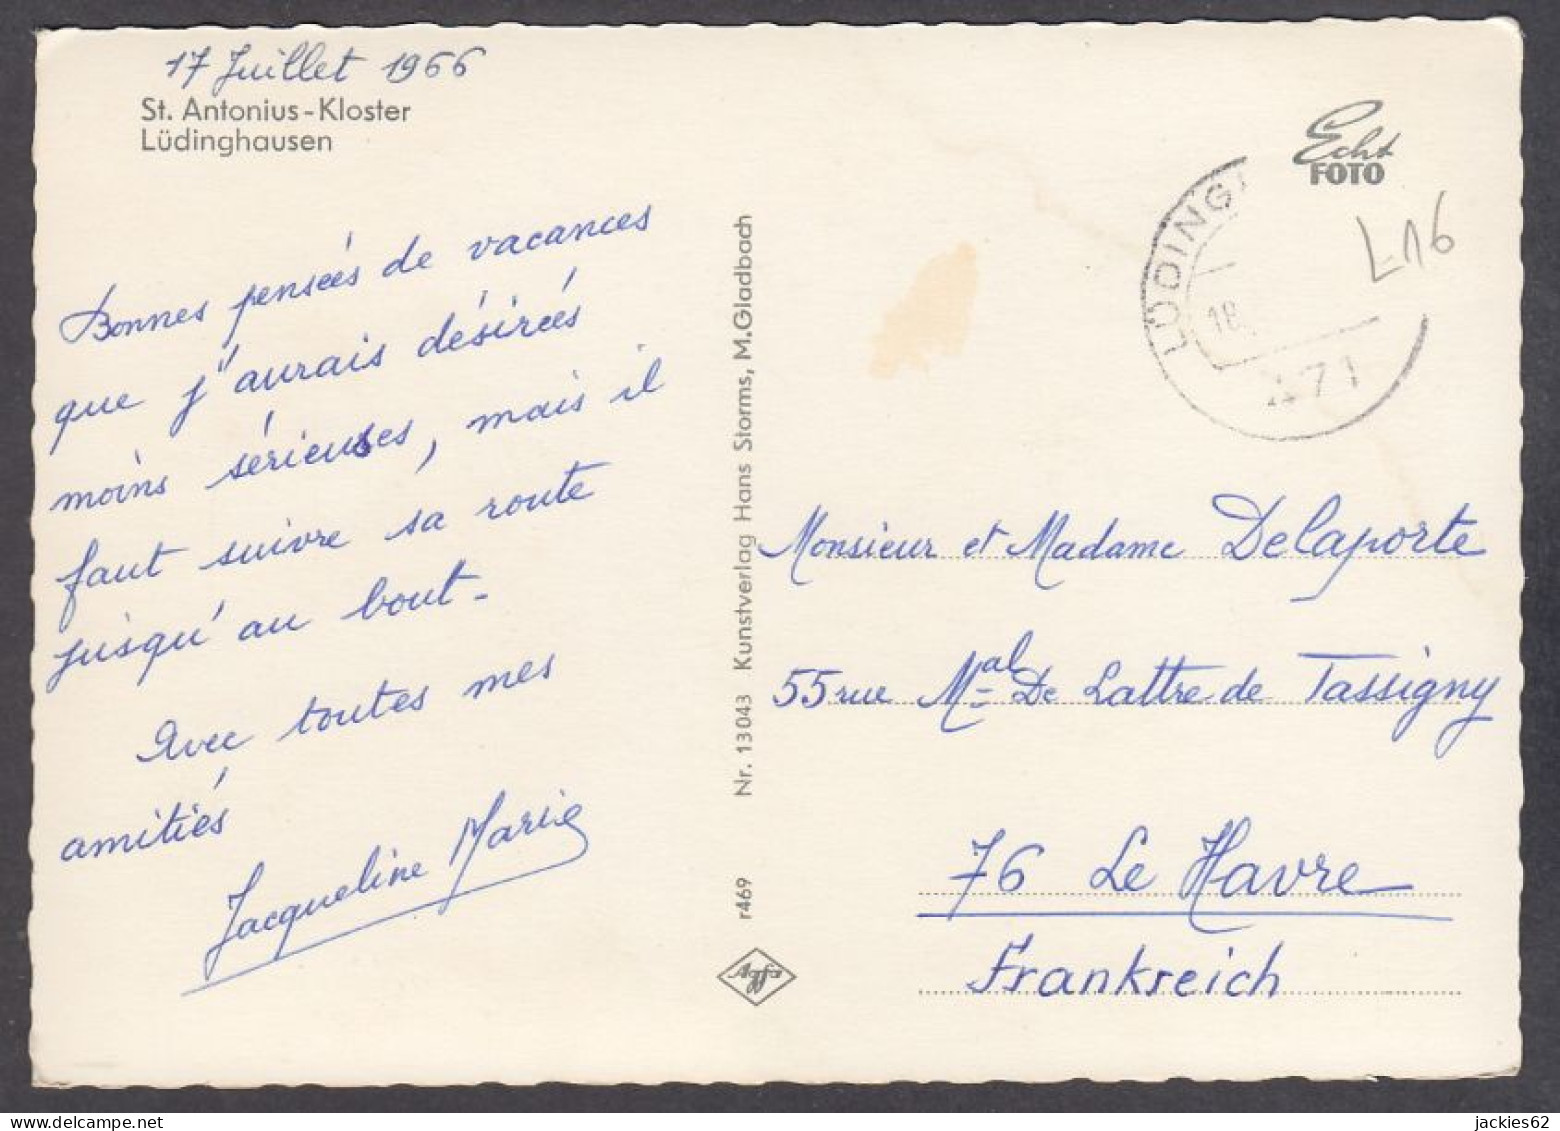 17 Juillet 1966
St. Antonius-Kloster
Lüdinghausen
Bonnes pensées de vacances
que j'aurais désirées
moins sérieuses, mais il
faut suivre sa route
jusqu'au bout-
Avec toutes mes
amitiés
Jacqueline Marie
Nr. 13043 Kunstverlag Hans Storms, M.Gladbach
r469
Agfa
Echt
FOTO
L16
LÜDING
18
471
Monsieur et Madame Delaporte
55 rue Mal De Lattre de Tassigny
76 Le Havre
Frankreich
jackies62